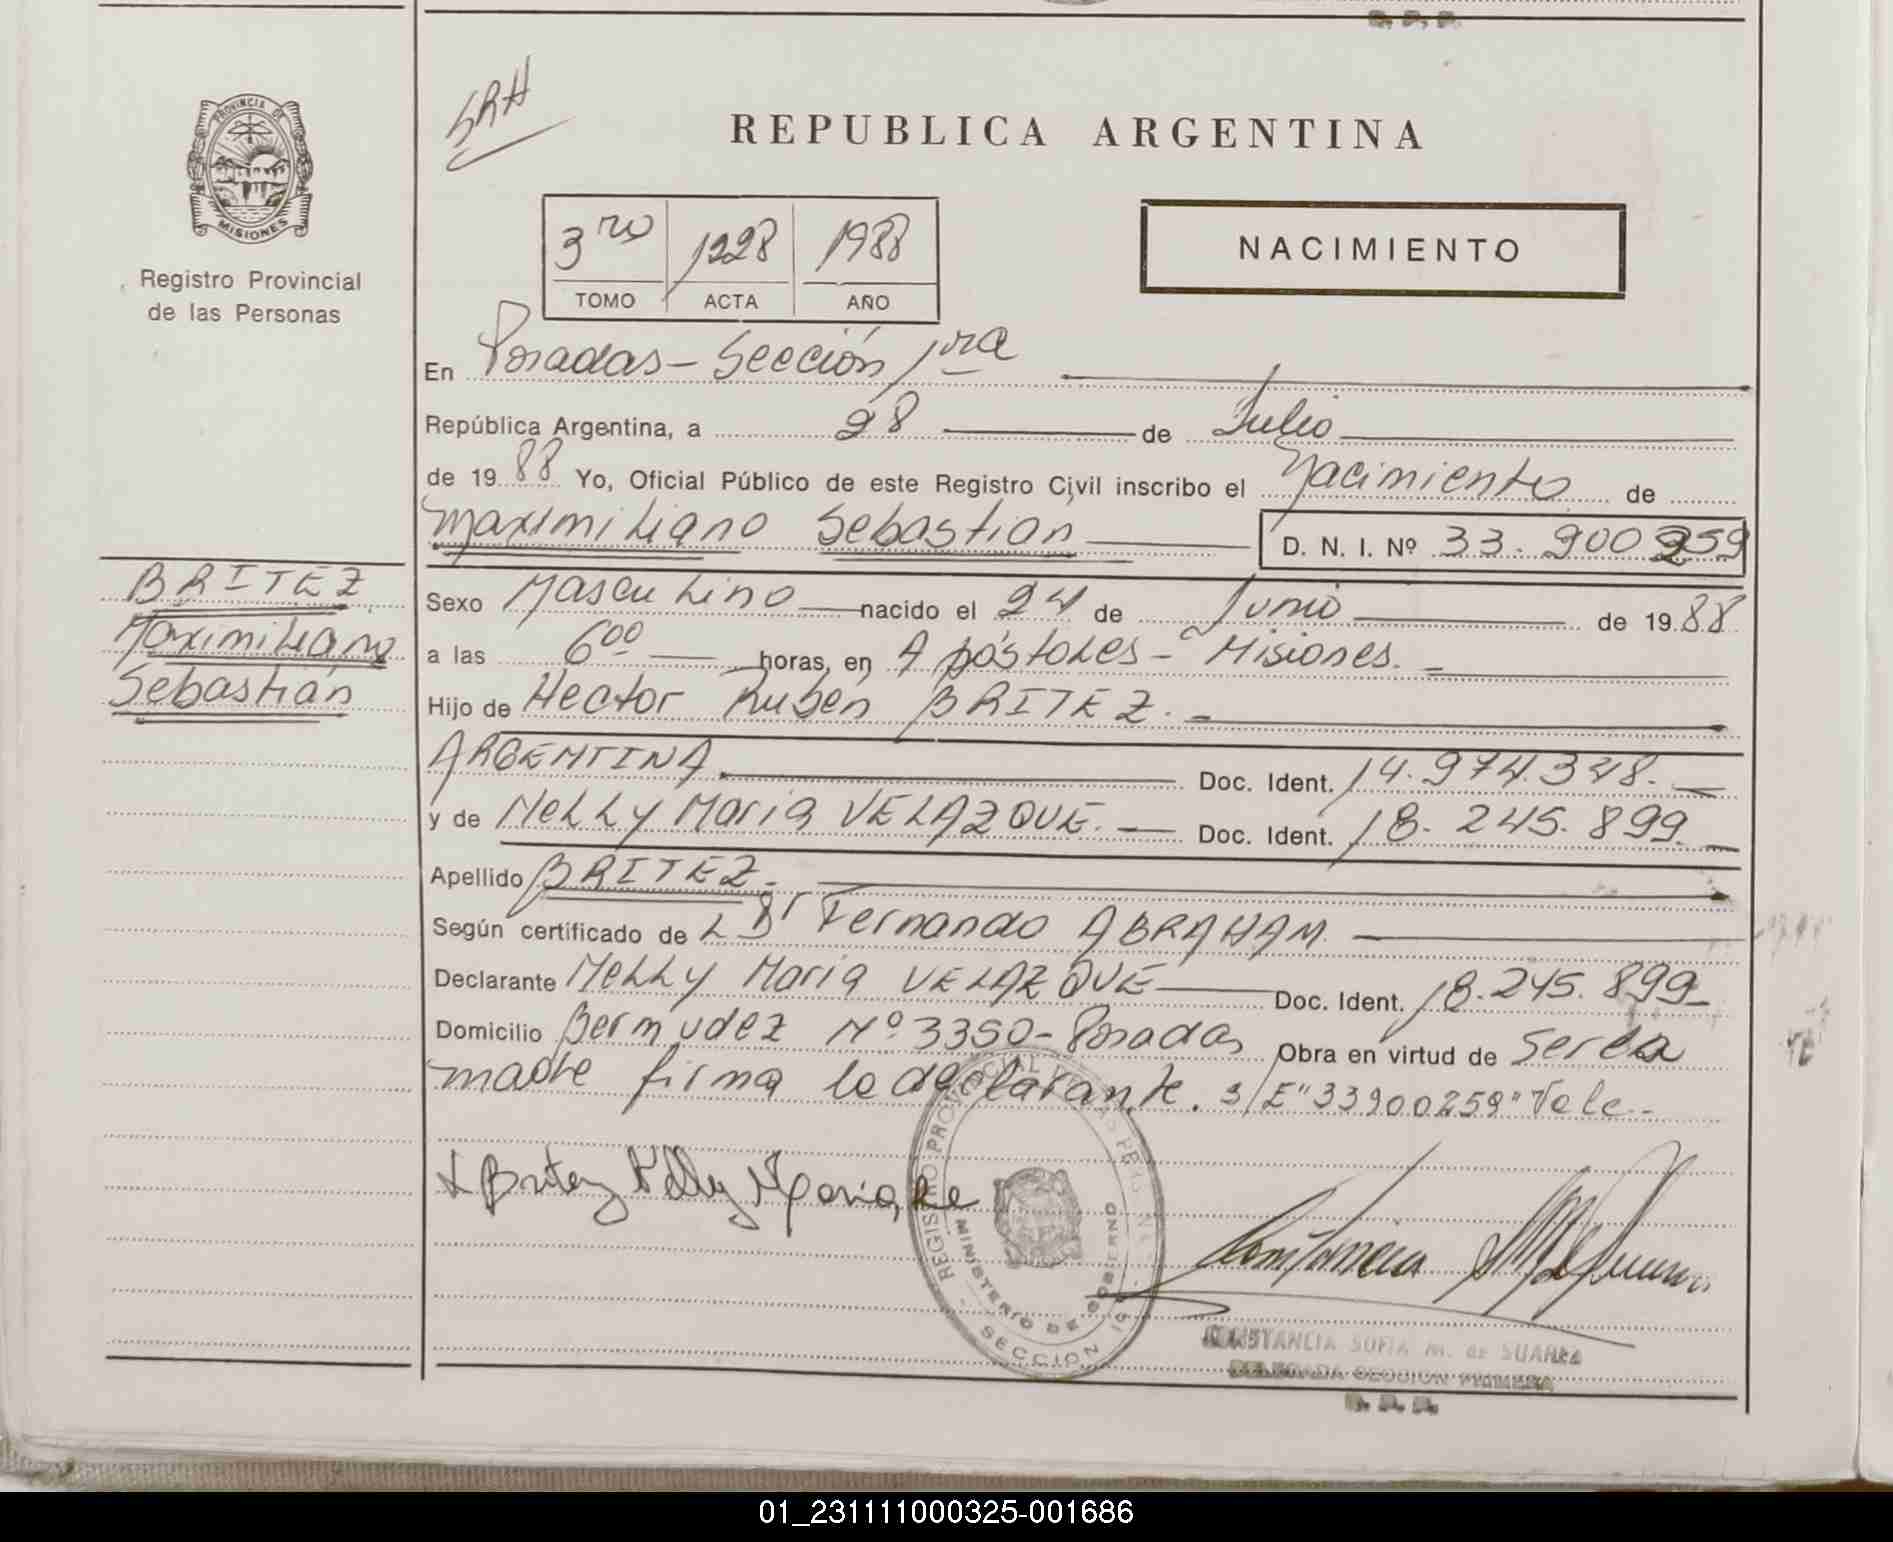 R. P. P.
PROVINCIA DE
MISIONES
Registro Provincial
de las Personas
SRH
REPUBLICA ARGENTINA
3ro 1228 1988
TOMO ACTA AÑO
NACIMIENTO
En Posadas - Sección 1ra
República Argentina, a 28 de Julio
de 1988 Yo, Oficial Público de este Registro Civil inscribo el Nacimiento de
Maximiliano Sebastian D. N. I. Nº 33.900259
BRITEZ
Maximiliano
Sebastián
Sexo Masculino nacido el 24 de Junio de 1988
a las 6oo horas, en Apóstoles - Misiones.
Hijo de Hector Ruben BRITEZ.
ARGENTINA Doc. Ident. 14.974.348.
y de Nelly Maria VELAZQUE. Doc. Ident. 18.245.899.
Apellido BRITEZ.
Según certificado de L Dr Fernando ABRAHAM.
Declarante Nelly Maria VELAZQUE Doc. Ident. 18.245.899
Domicilio Bermudez Nº 3350 - Posadas Obra en virtud de Ser la
madre firma la declarante. S/E "33900259" Vale.
Britez Nelly Maria
REGISTRO PROVINCIAL DE LAS PERSONAS
MINISTERIO DE GOBIERNO
SECCION 1a
CONSTANCIA SOFIA M. de SUAREZ
DELEGADA SECCION PRIMERA
R. P. P.
01_231111000325-001686